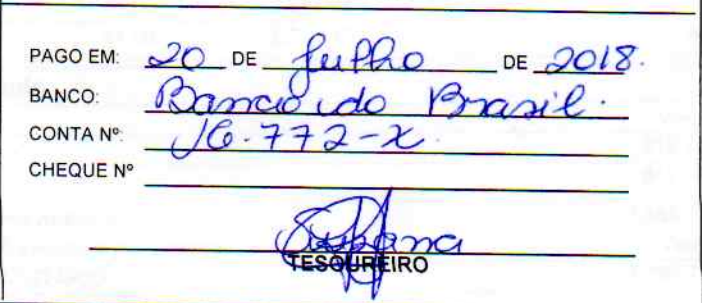 PAGO EM: 20 DE Julho DE 2018.
BANCO: Banco do Brasil.
CONTA Nº: 16.772-X.
CHEQUE Nº
TESOUREIRO